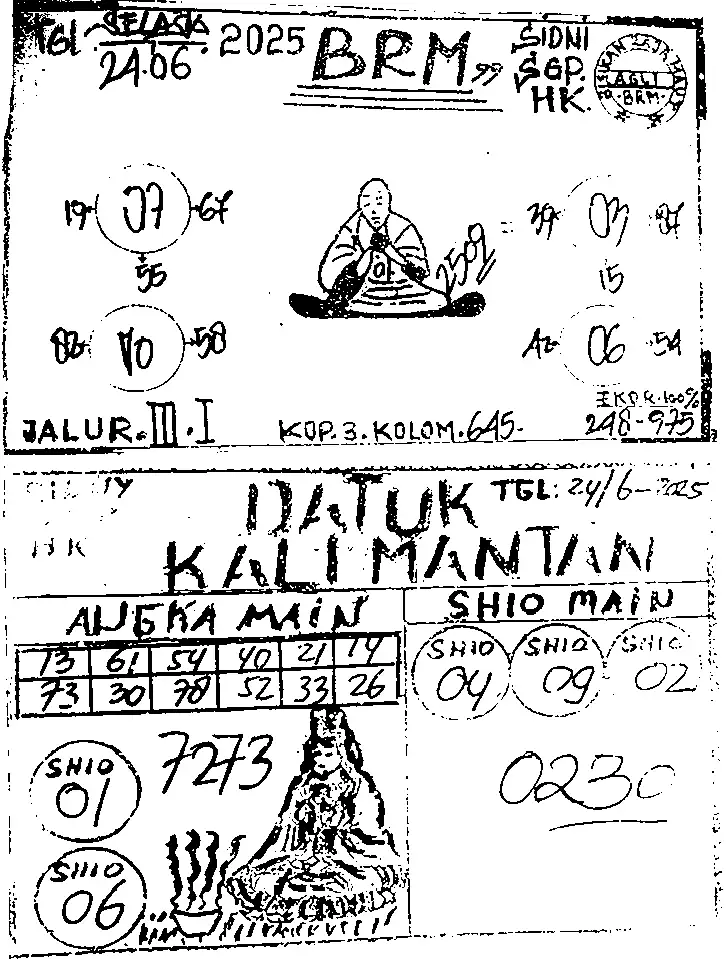 TGL SELASA 24.06. 2025
BRM 99
SIDNI
SGP.
HK.
AGLI
BRM
19 07 67
55
70 58
39 03
15
42 06 54
2509
JALUR. III. I
KOP. 3. KOLOM. 645.
EKOR. 100%
248-975
HK
DATUK
KALIMANTAN
TGL: 24/6-2025
ANGKA MAIN
13 61 54 40 21 14
73 30 78 52 33 26
SHIO MAIN
SHIO 04
SHIO 09
SHIO 02
SHIO 01
7273
0230
SHIO 06